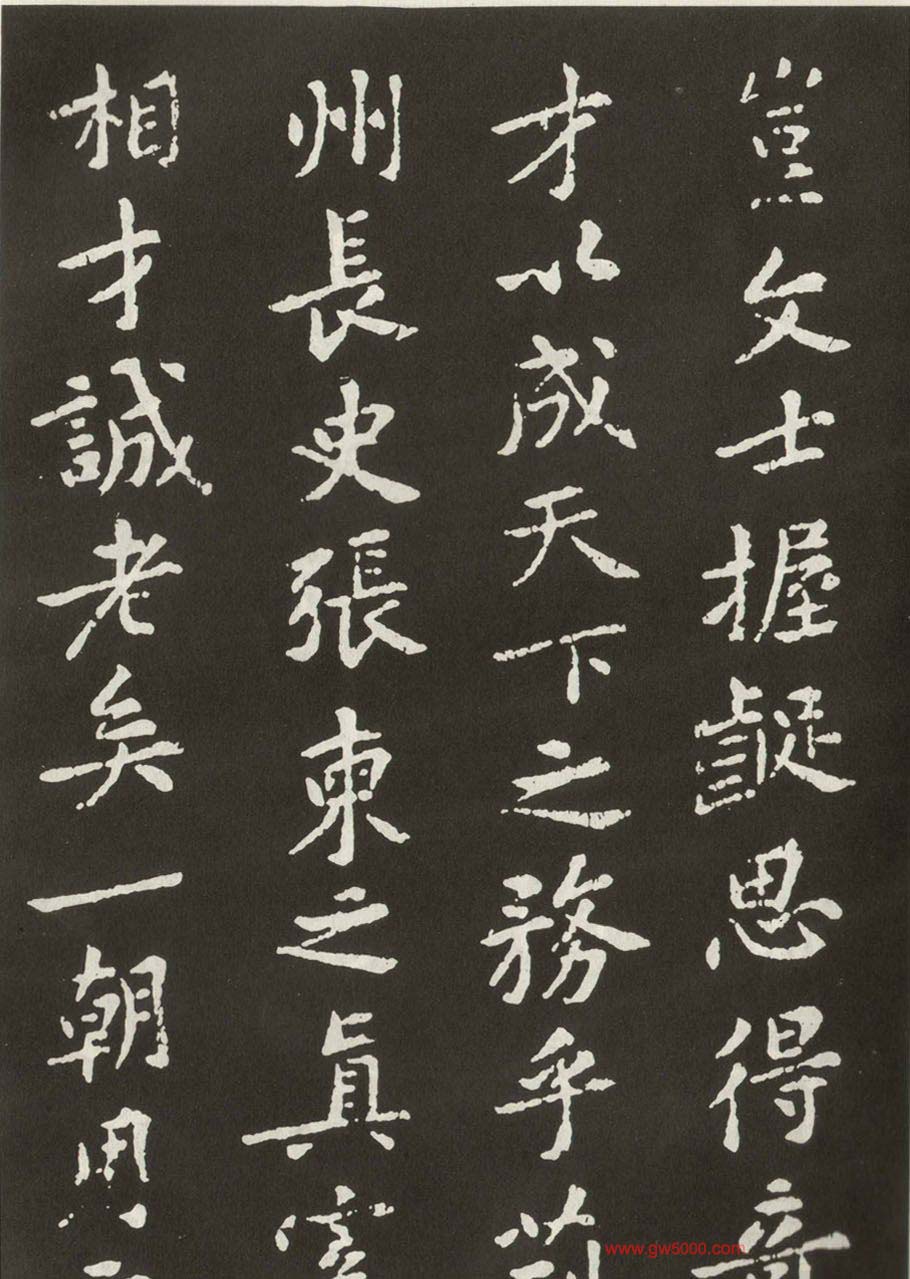 豈文士握齪思得奇
才以成天下之務乎荊
州長史張柬之眞宰
相才誠老矣一朝用
www.gw5000.com